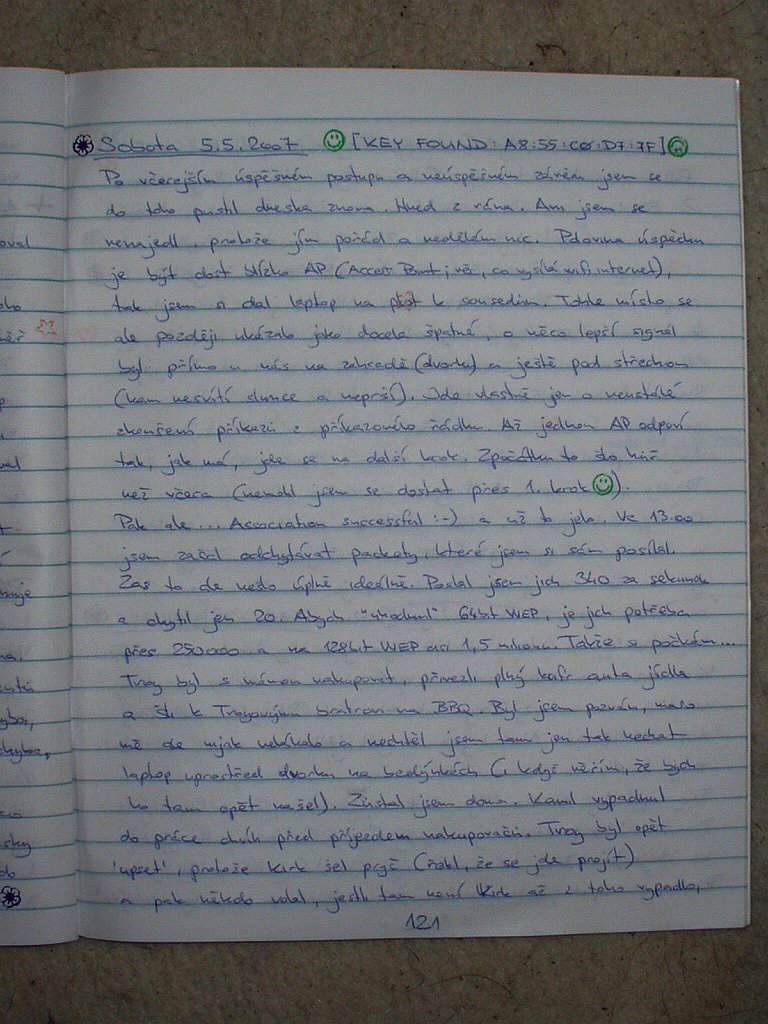 Sobota 5.5.2007 [KEY FOUND: A8:55:C0:D7:7F]
Po včerejším úspěšném postupu a neúspěšném závěru jsem se
do toho pustil dneska znova. Hned z rána. Ani jsem se
nenajedl, protože jím pořád a nedělám nic. Polovina úspěchu
je být dost blízko AP (Access Point; věc, co vysílá wifi internet),
tak jsem si dal laptop na plot k sousedům. Tohle místo se
ale později ukázalo jako docela špatné, o něco lepší signál
byl přímo u nás na zahradě (dvorku) a ještě pod střechou
(kam nesvítí slunce a neprší). Jde vlastně jen o neustálé
zkoušení příkazů z příkazového řádku. Až jednou AP odpoví
tak, jak má, jde se na další krok. Zpočátku to šlo hůř
než včera (nemohl jsem se dostat přes 1. krok).
Pak ale... Association successful :-) a už to jelo. Ve 13.00
jsem začal odchytávat packety, které jsem si sám posílal.
Zas to ale nešlo úplně ideálně. Poslal jsem jich 340 za sekundu
a chytil jen 20. Abych "uhodnul" 64bit WEP, je jich potřeba
přes 250000 a na 128bit WEP asi 1,5 milionu. Takže si počkám...
Troy byl s mámou nakupovat, přivezli plný kufr auta jídla
a šli k Troyovým bratrovi na BBQ. Byl jsem pozván, maso
mě ale nijak nelákalo a nechtěl jsem tam jen tak nechat
laptop uprostřed dvorku na bedýnkách (i když věřím, že bych
ho tam opět našel). Zůstal jsem doma. Kamil vypadnul
do práce chvíli před příjezdem nakupovačů. Troy byl opět
'upset', protože Kirk šel pryč (řekl, že se jde projít)
a pak někdo volal, jestli tam není Kirk až z toho vypadlo,
121